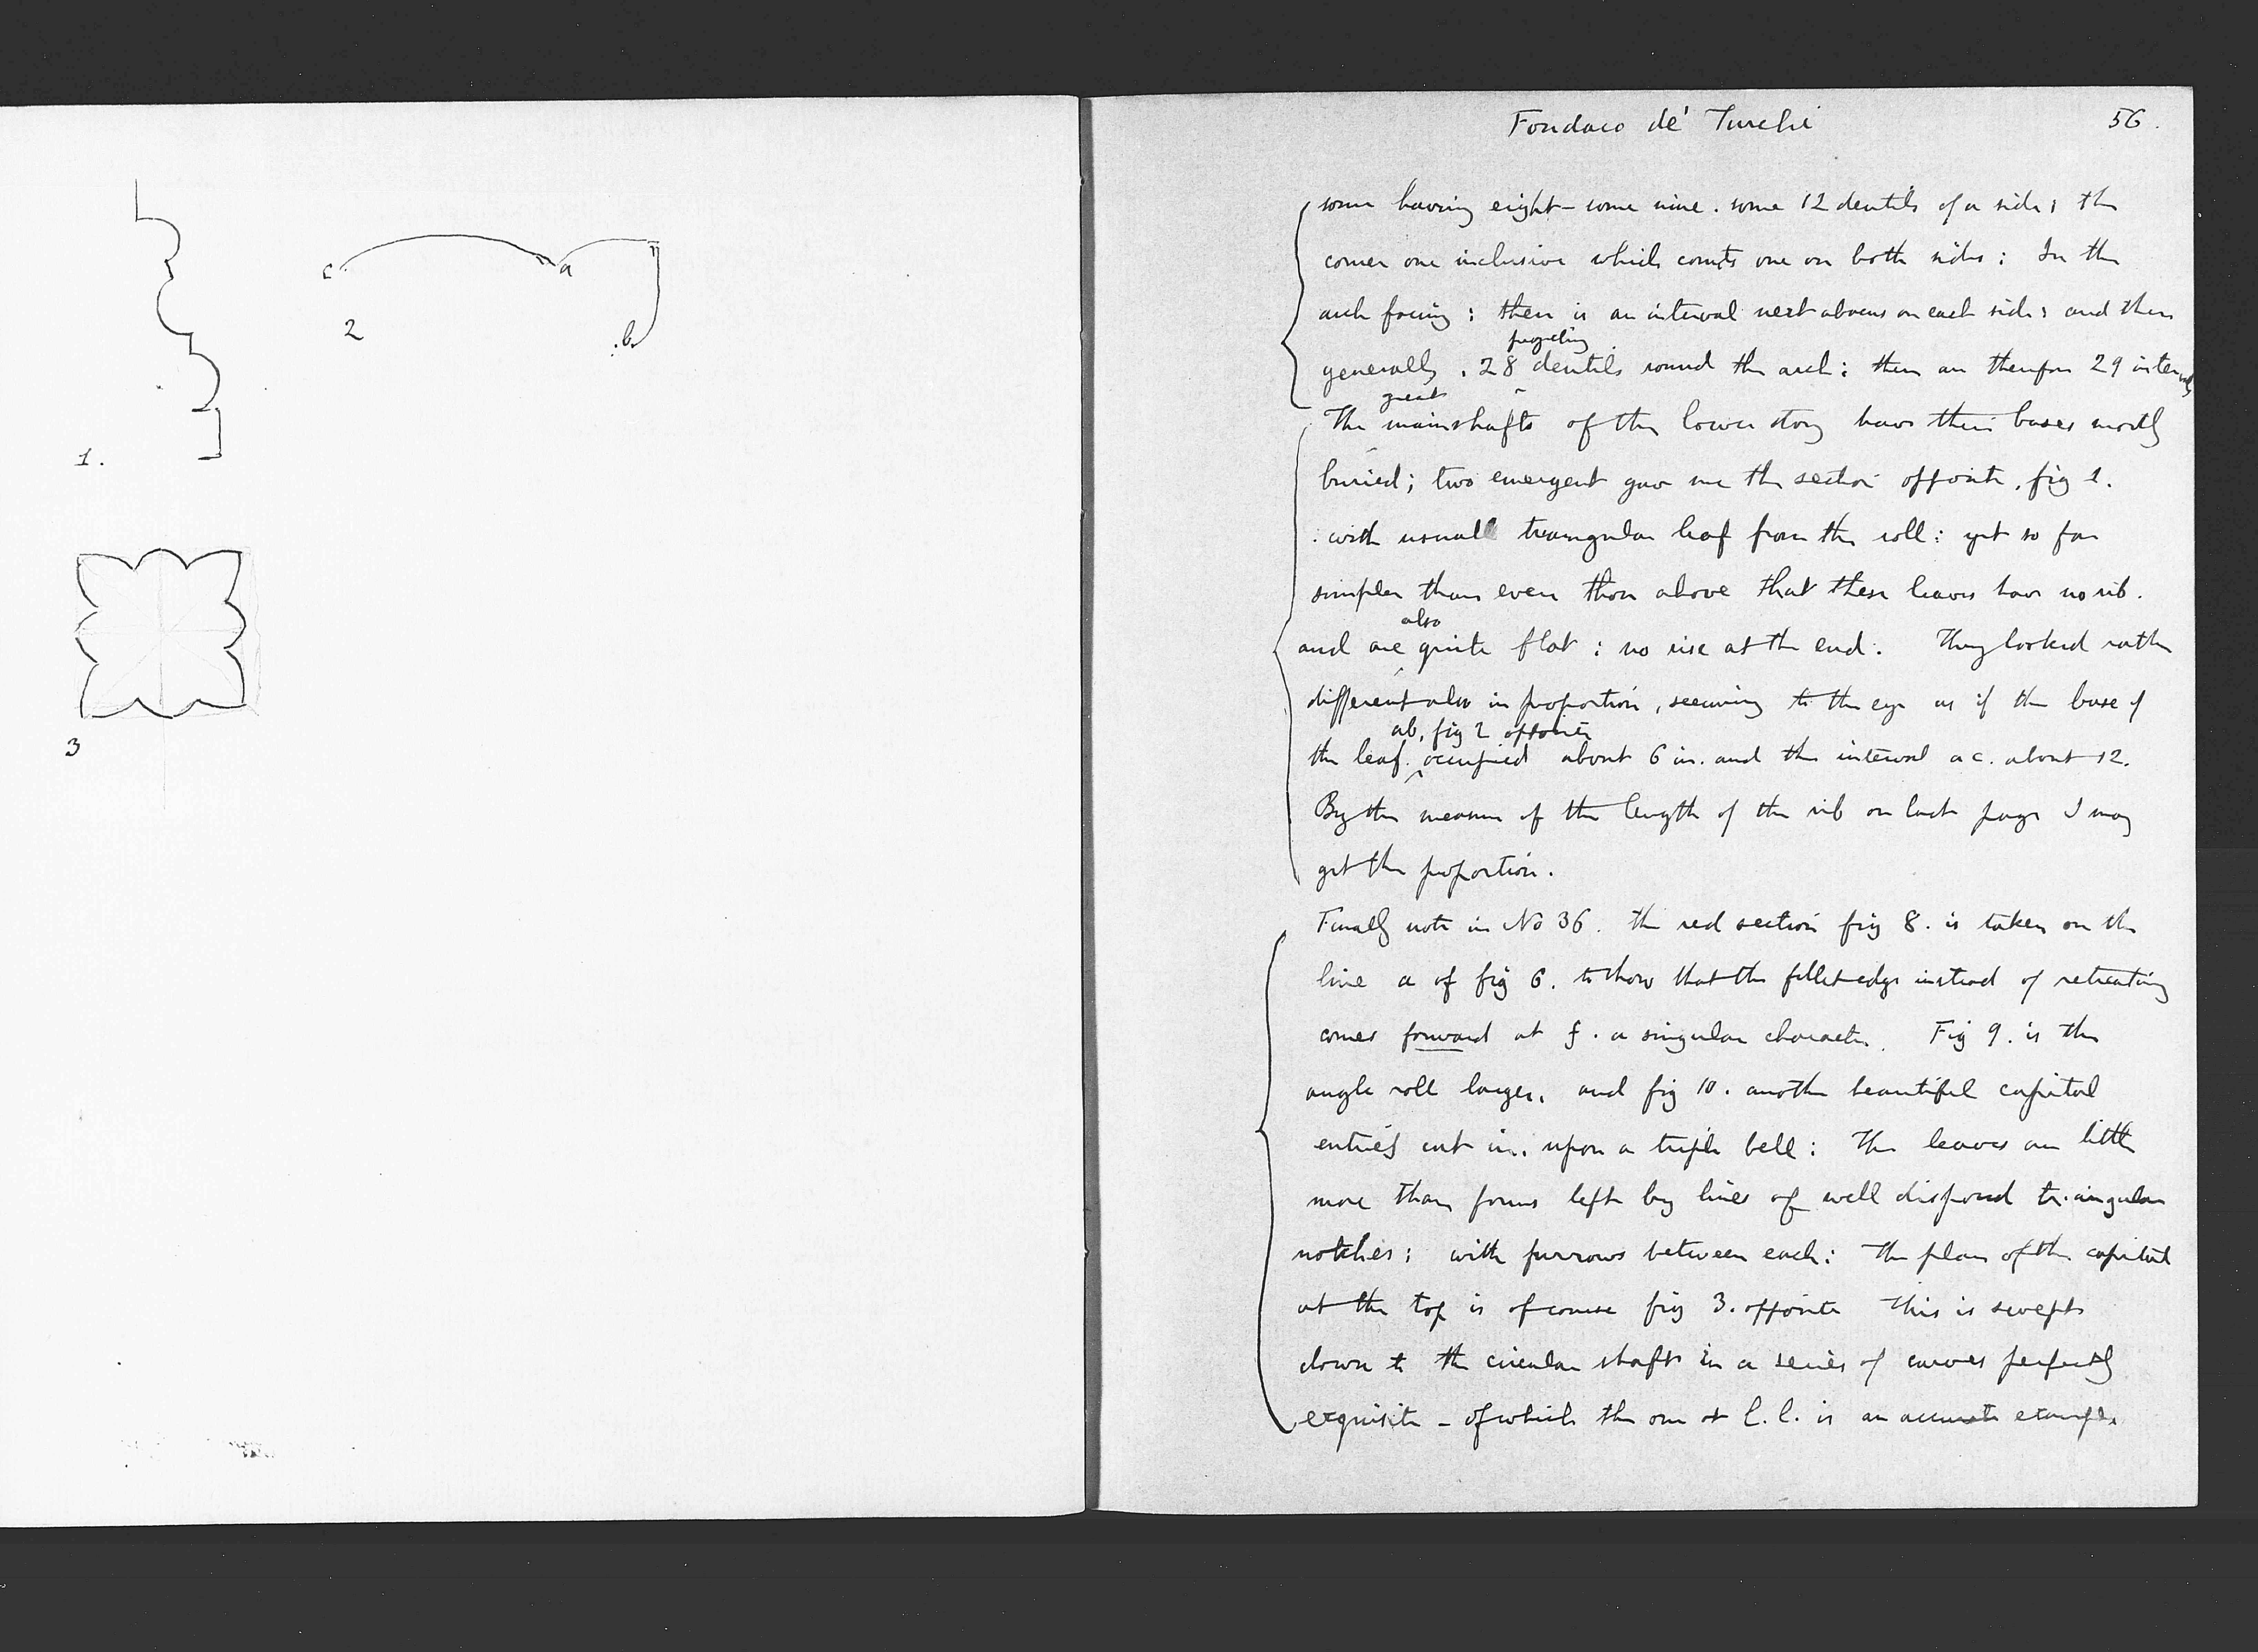 1.
c
a
b
2
3
Fondaco de' Turchi
56.
some having eight - some nine. some 12 dentils of a side; the
corner one inclusive which counts one on both sides: In the
arch facing: there is an interval next abacus on each side: and there
projecting
generally. 28 dentils round the arch: there are therefore 29 intervals
great
The main shafts of the lower story have their bases mostly
buried; two emergent gave me the section opposite, fig 1.
with usual triangular leaf from the roll: yet so far
simpler than even those above that these leaves have no rib.
also
and are quite flat: no rise at the end. They looked rather
different also in proportion, seeming to the eye as if the base of
ab, fig 2 opposite
the leaf. occupied about 6 in. and the interval a c. about 12.
By the measure of the length of the rib on last page I may
get the proportion.
Finally note in No 36. the red section fig 8. is taken on the
line a of fig 6. to show that the fillet edge instead of retreating
comes forward at f. a singular character. Fig 9. is the
angle roll larger. and fig 10. another beautiful capital
entirely cut in. upon a triple bell: The leaves are little
more than forms left by lines of well disposed triangular
notches: with furrows between each: The plan of the capital
at the top is of course fig 3. opposite This is swept
down to the circular shaft in a series of curves perfectly
exquisite - of which the one at l. l. is an accurate example.